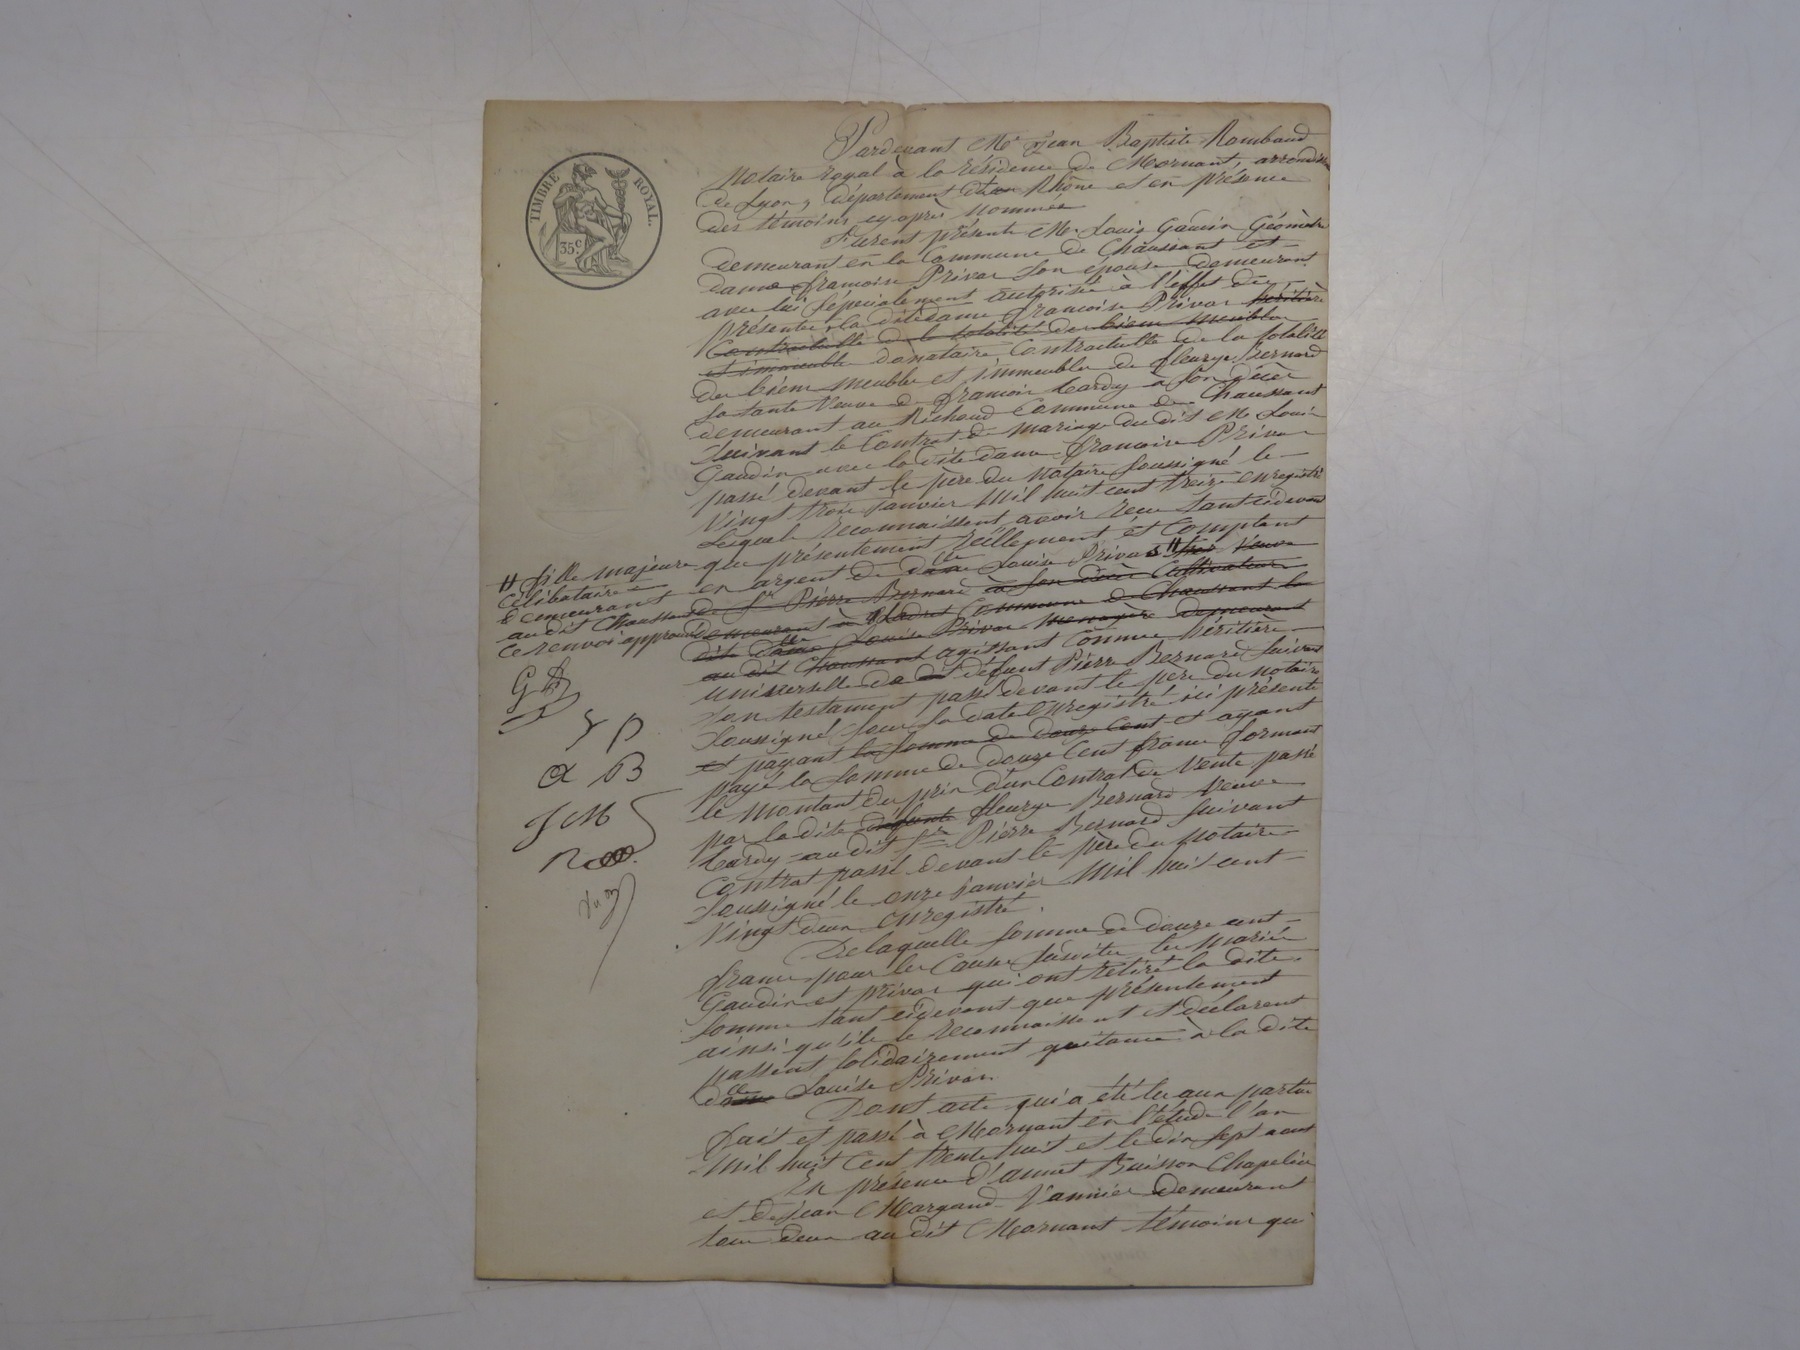 TIMBRE ROYAL.
35.c
Pardevant Me Jean Baptiste Rambaud
Notaire royal à la résidence de Mornant, arrondisse
de Lyon, département du Rhône et en présence
des témoins cy après nommés
Furent présents Mr Louis Gaudin Géomètre
demeurant en la Commune de Chaussant et
dame francoise Privas son épouse demeurant
avec lui spécialement autorisée à l'effet des
présentes, la dite dame francoise Privas héritière
Contractuelle de la totalité des biens meubles
et immeubles donataire Contractuelle de la totalité
des biens meubles et immeubles de fleurye Bernard
sa tante Veuve de francois Cardy à son décès
demeurant au Richoud Commune de Chaussant
suivant le Contrat de mariage du dit Mr Louis
Gaudin avec la dite dame francoise Privas
passé devant le père du Notaire soussigné le
Vingt trois janvier Mil huit cent treize enregistré
Lesquels reconnaissent avoir reçu tant cidevant
que présentement réellement et Comptant
en argent de dame lle Louise Privas # Veuve
de Sr Pierre Bernard à son décès Cultivateur
demeurant à Commune de Chaussant la
dite dame lle Louise Privas menagère demeurant
au dit Chaussant agissant Comme héritière
universelle de dit défunt Pierre Bernard suivant
son testament passé devant le père du notaire
soussigné sous sa date enregistré ici présente
et payant la somme de douze Cent et ayant
payé la somme de douze Cent francs formant
le montant du prix d'un Contrat de Vente passé
par la dite défunte fleurye Bernard Veuve
Cardy au dit Sr Pierre Bernard suivant
Contrat passé devant le père du Notaire
soussigné le onze janvier Mil huit cent
Vingt deux enregistré.
De laquelle somme de douze cent
francs pour les Causes susdites les mariés
Gaudin et Privas qui ont retiré la dite
somme tant cidevant que présentement
ainsi qu'ils le reconnaissent et déclarent
passent solidairement quitance à la dite
dame lle Louise Privas.
Dont acte qui a été lu aux parties
fait et passé à Mornant en l'étude l'an
Mil huit Cent trente huit et le dix sept aout
En présence d'annet Buisson Chapelier
et de Jean Margand Vannier demeurant
tous deux au dit Mornant témoins qui
# fille majeure
célibataire
demeurant
au dit Chaussant
Ce renvoi approuvé
G
P
B
JM